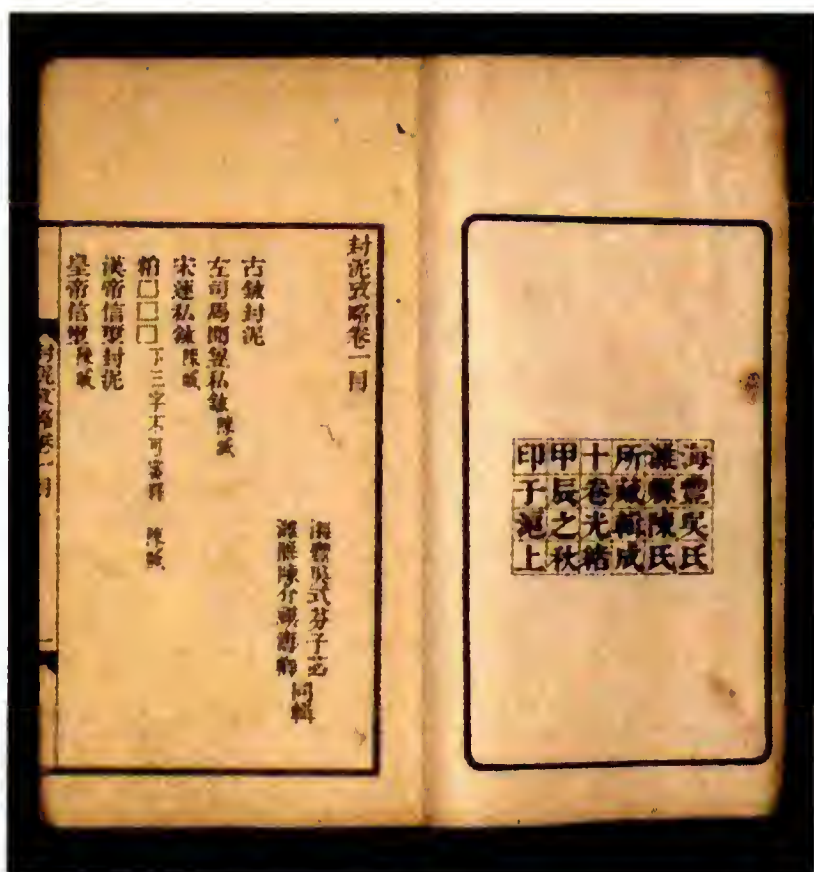 海豐吳氏
濰縣陳氏
所藏輯成
十卷光緒
甲辰之秋
印于滬上
封泥攷略卷一目
海豐吳式芬子苾
濰縣陳介祺壽卿
同輯
古鉨封泥
左司馬聞 私鉨 陳藏
宋連私鉨 陳藏
□□□ 下三字不可審釋 陳藏
漢帝信璽封泥
皇帝信璽 陳藏
封泥攷略卷一目
一